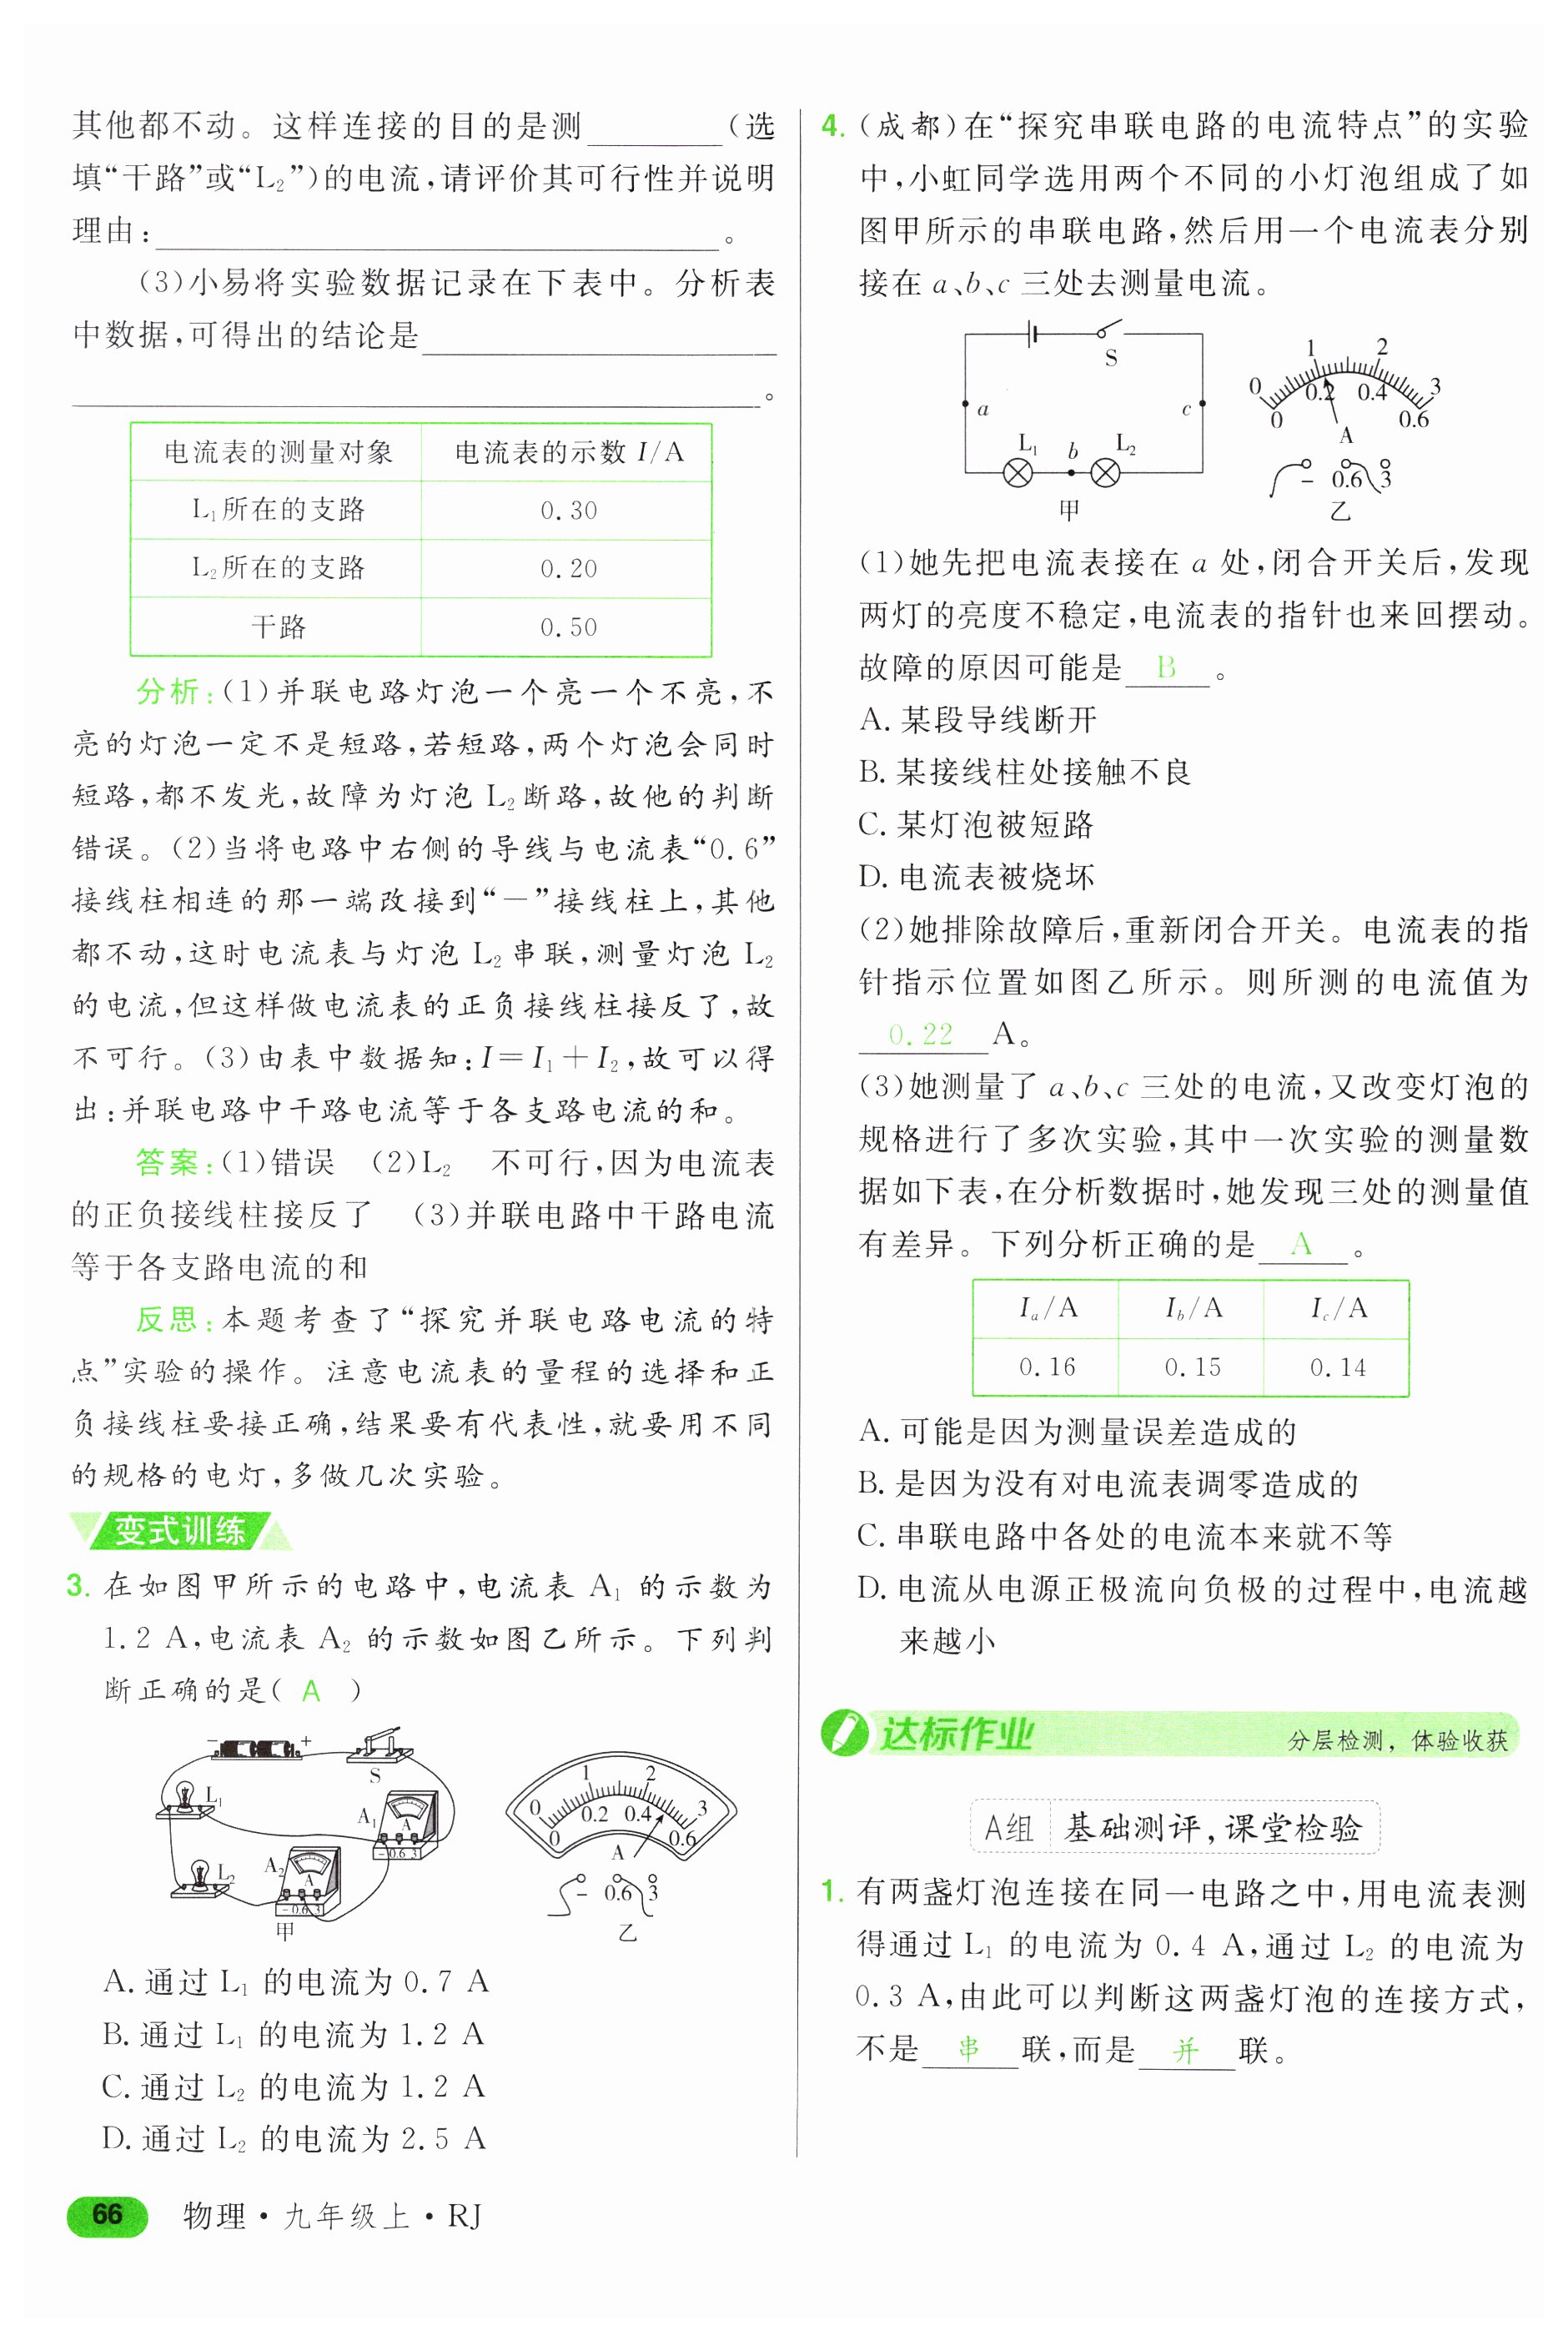 其他都不动。这样连接的目的是测________(选
填“干路”或“L₂”)的电流,请评价其可行性并说明
理由:________________________________。
(3)小易将实验数据记录在下表中。分析表
中数据,可得出的结论是____________________
________________________________________。
电流表的测量对象 电流表的示数 I/A
L₁所在的支路 0.30
L₂所在的支路 0.20
干路 0.50
分析:(1)并联电路灯泡一个亮一个不亮,不
亮的灯泡一定不是短路,若短路,两个灯泡会同时
短路,都不发光,故障为灯泡 L₂断路,故他的判断
错误。(2)当将电路中右侧的导线与电流表“0.6”
接线柱相连的那一端改接到“—”接线柱上,其他
都不动,这时电流表与灯泡 L₂串联,测量灯泡 L₂
的电流,但这样做电流表的正负接线柱接反了,故
不可行。(3)由表中数据知:I=I₁+I₂,故可以得
出:并联电路中干路电流等于各支路电流的和。
答案:(1)错误 (2)L₂ 不可行,因为电流表
的正负接线柱接反了 (3)并联电路中干路电流
等于各支路电流的和
反思:本题考查了“探究并联电路电流的特
点”实验的操作。注意电流表的量程的选择和正
负接线柱要接正确,结果要有代表性,就要用不同
的规格的电灯,多做几次实验。
变式训练
3. 在如图甲所示的电路中,电流表 A₁ 的示数为
1.2 A,电流表 A₂ 的示数如图乙所示。下列判
断正确的是( A )
− +
S
L₁
A₁
A
− 0.6 3
L₂
A₂
A
− 0.6 3
甲
0 1 2 3
0 0.2 0.4 0.6
A
− 0.6 3
乙
A. 通过 L₁ 的电流为 0.7 A
B. 通过 L₁ 的电流为 1.2 A
C. 通过 L₂ 的电流为 1.2 A
D. 通过 L₂ 的电流为 2.5 A
66 物理·九年级上·RJ
4. (成都)在“探究串联电路的电流特点”的实验
中,小虹同学选用两个不同的小灯泡组成了如
图甲所示的串联电路,然后用一个电流表分别
接在 a、b、c 三处去测量电流。
S
a c
L₁ b L₂
甲
0 1 2 3
0 0.2 0.4 0.6
A
− 0.6 3
乙
(1)她先把电流表接在 a 处,闭合开关后,发现
两灯的亮度不稳定,电流表的指针也来回摆动。
故障的原因可能是 B 。
A. 某段导线断开
B. 某接线柱处接触不良
C. 某灯泡被短路
D. 电流表被烧坏
(2)她排除故障后,重新闭合开关。电流表的指
针指示位置如图乙所示。则所测的电流值为
0.22 A。
(3)她测量了 a、b、c 三处的电流,又改变灯泡的
规格进行了多次实验,其中一次实验的测量数
据如下表,在分析数据时,她发现三处的测量值
有差异。下列分析正确的是 A 。
Iₐ/A I_b/A I_c/A
0.16 0.15 0.14
A. 可能是因为测量误差造成的
B. 是因为没有对电流表调零造成的
C. 串联电路中各处的电流本来就不等
D. 电流从电源正极流向负极的过程中,电流越
来越小
达标作业 分层检测, 体验收获
A组 基础测评,课堂检验
1. 有两盏灯泡连接在同一电路之中,用电流表测
得通过 L₁ 的电流为 0.4 A,通过 L₂ 的电流为
0.3 A,由此可以判断这两盏灯泡的连接方式,
不是 串 联,而是 并 联。